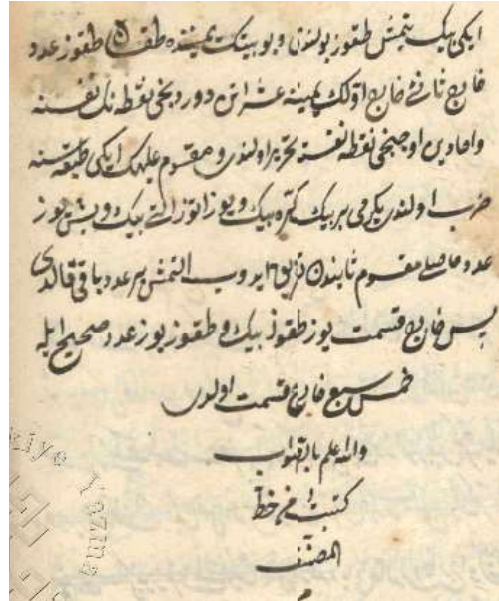 ایکی بیك یتمش طقوز بولندی و بو بیتك یمیننده طقوز عدد
خارج ثانی خارج اولك یمینه عشراتن دوردنجی نقطه نك تحتنه
واحادین اوچنجی نقطه تحتنه تحریر اولندی و مقسوم علیهك ایکی طبقه سنه
ضرب اولندی یکرمی بر بیك کره بیك و یوز اوتوز التی بیك و بشیوز
عدد حاصلی مقسوم ثابتدن ایدوب التمش بر عدد باقی قالدی
پس خارج قسمت یوز طقوز بیك و طقوز یوز عدد صحیح ایله
خمس سبع خارج قسمت اولدی
والله اعلم بالصواب
كتبت من خط
المصنف